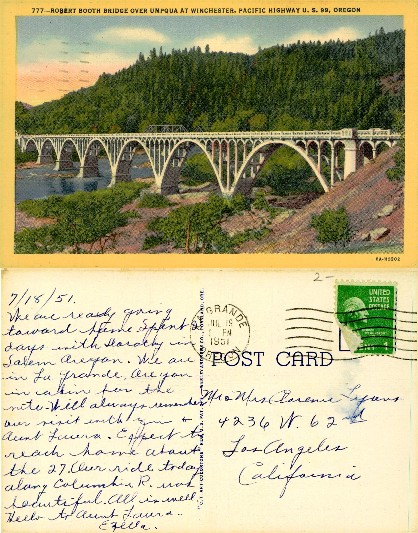 777—ROBERT BOOTH BRIDGE OVER UMPQUA AT WINCHESTER, PACIFIC HIGHWAY U. S. 99, OREGON
6A-H2502
7/18/51.
We are ready going
toward home. Spent 2
days with Dorothy in
Salem Oregon. We are
in La Grande, Oregon
in cabin for the
nite. Will always remember
our visit with you &
Aunt Luera. Expect to
reach home about
the 27. Our ride today
along Columbia R. was
beautiful. All is well.
Hello to Aunt Luera.
Ezella.
LA GRANDE
JUL 19
PM
1951
2-
UNITED
STATES
POSTAGE
1
POST CARD
Mr & Mrs Clarence Lyons
4236 W. 62nd
Los Angeles
California